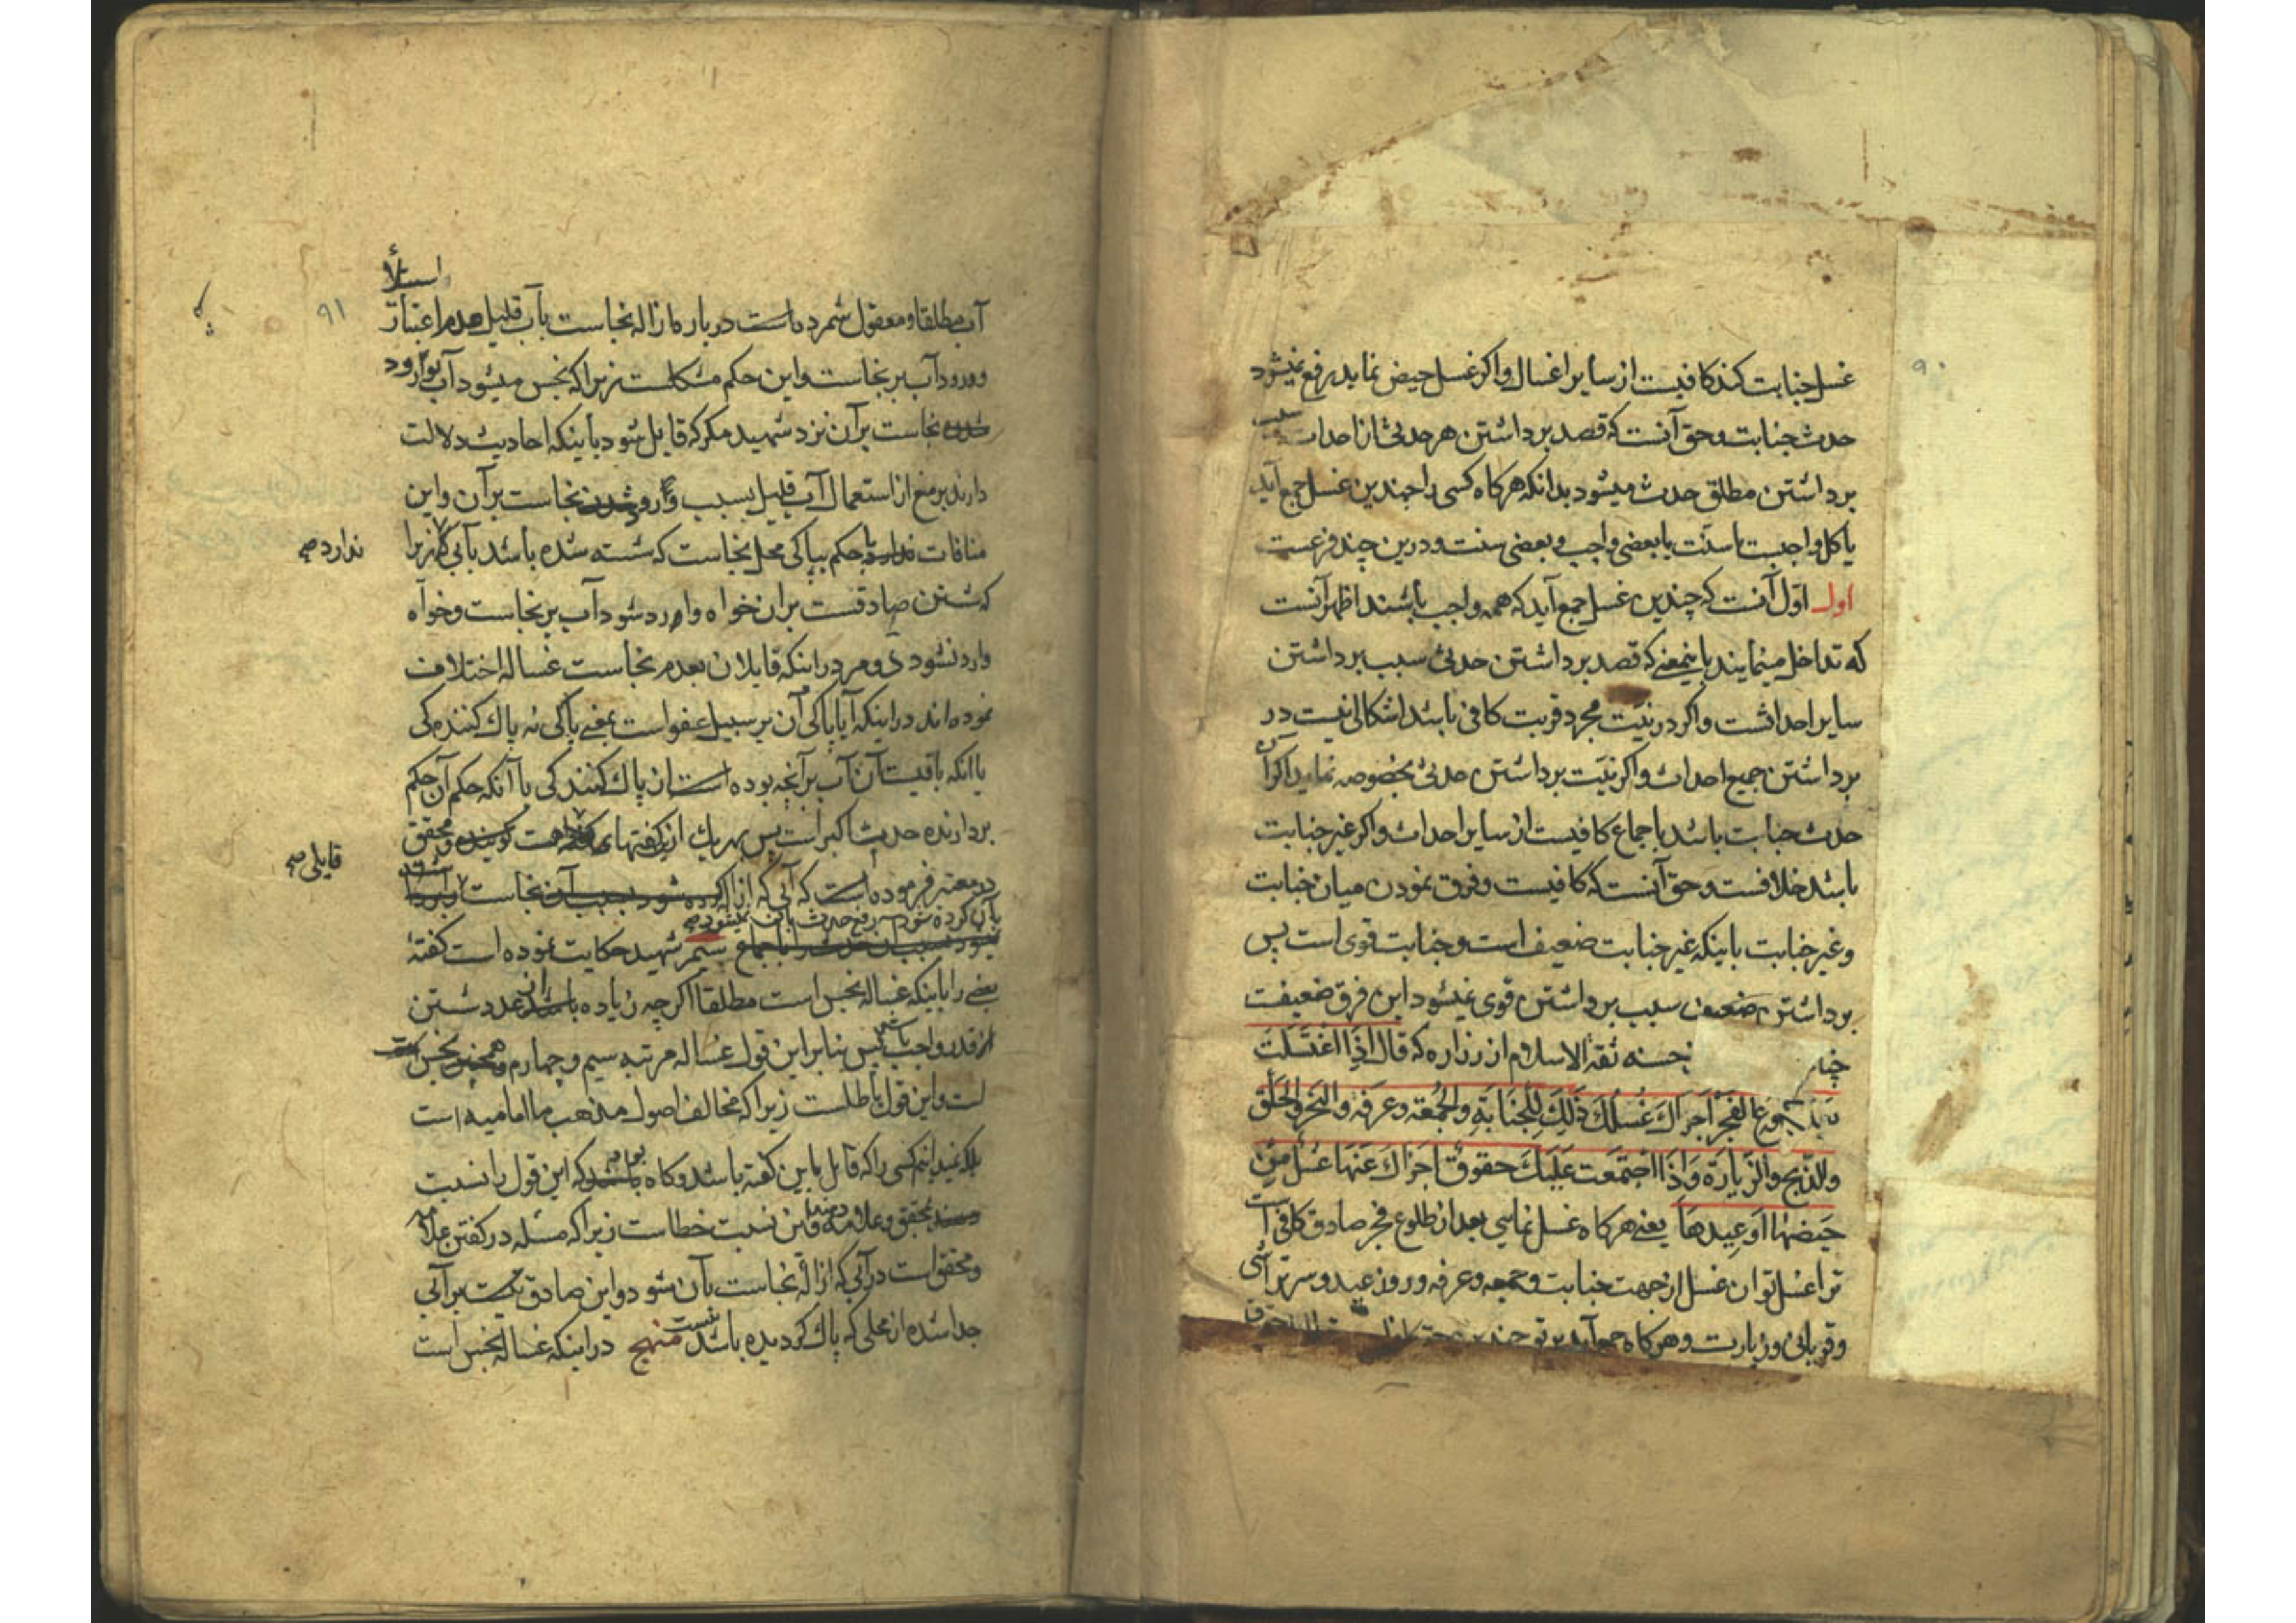 ۹۰
غسل جنابت کند کافیست از سایر اغسال و اکر غسل حیض نماید رفع نمیشود
حدث جنابت و حق آنست که قصد برداشتن هر حدثی از احداث سبب
برداشتن مطلق حدث میشود بدانکه هرکاه کسی را چندین غسل جمع آید
یا کل واجبست یا سنّت یا بعضی واجب و بعضی سنت و درین چند فرعست
اول اوّل آنست که چندین غسل جمع آید که همه واجب باشند اظهر آنست
که تداخل مینمایند باینمعنی که قصد برداشتن حدثی سبب برداشتن
سایر احداثست و اکر در نیّت مجرد قربت کافی باشد اشکالی نیست در
برداشتن جمیع احداث و اکر نیّت برداشتن حدثی بخصوصه نماید اکر آن
حدث جنابت باشد باجماع کافیست از سایر احداث و اکر غیر جنابت
باشد خلافست و حق آنست که کافیست و فرق نمودن میان جنابت
و غیر جنابت باینکه غیر جنابت ضعیف است و جنابت قوی است پس
برداشتن ضعیف سبب برداشتن قوی نمیشود این فرق ضعیفست
حسنه ثقه الاسلام از زراره که قال اِذَا اغْتَسَلْتَ
الفَجْرِ اَجزاكَ غُسْلُكَ ذَلِكَ لِلْجَنَابَةِ وَالْجُمُعَة وَعَرَفَة وَالنَحرِ وَالْحَلْق
وَالذَّبْحِ وَالزِّيَارَةِ وَاِذَا اجْتَمَعَت عَلَيكَ حقوقٌ اَجزاكَ عَنْهَا غسلٌ مِنْ
حَيضهَا اَو عِيدهَا یعنی هرکاه غسل نمایی بعد از طلوع فجر صادق کافی است
ترا غسل تو ان غسل از جهت جنابت و جمعه و عرفه و روز عید و سر تراشی
و قربانی و زیارت و هرکاه جمع آید بر تو چندین
۹۱
آب مطلقا و معقول شمرده است درباره ازاله نجاست بآب قلیل عدم اعتبار
استیلأ
ورود آب بر نجاست و این حکم مشکلست زیرا که نجس میشود آب بوارود
نجاست بر آن نزد شهید مکر که قایل شود باینکه احادیث دلالت
دارند بر منع از استعمال آب قلیل بسبب وارد شدن نجاست بر آن و این
منافات ندارد با حکم بپاکی محل نجاست که شسته شده باشد بآبی که زیرا
ندارد صح
که شستن صادقست بر ان خواه وارد شود آب بر نجاست و خواه
وارد نشود دویم در اینکه قایلان بعدم نجاست غساله اختلاف
نموده اند در اینکه آیا پاکی آن بر سبیل عفو است بمعنی پاکی نه پاک کنندکی
یا انکه باقیست آن آب بر آنچه بوده است از پاک کنندکی یا آنکه حکم آن حکم
بردارنده حدث اکبر است پس بهر یک از این کفتها
محقق
قایلی صح
در معتبر فرموده است که آبی که ازاله نجاست
بآن کرده شود رفع حدث بآن نمیشود صح
باجماع سیم شهید حکایت نموده است کفتهٔ
بعضی را باینکه غساله نجس است مطلقا اکرچه زیاده باشد عدد شستن
از قدر واجب پس بنابر این قول غساله مرتبه سیم و چهارم نجس
است و این قول باطلست زیرا که مخالف اصول مذهب ما امامیه است
بلکه نمیدانیم کسی را که قایل باین کفته باشد و کاه باشد که این قول را نسبت
دهند بمحقق و علامه و این نسبت خطاست زیرا که مسئله در کفتن علامه
و محقق است در آبی که ازالهٔ نجاست بآن شود و این صادق نیست بر آبی
جدا شده از محلی که پاک کردیده باشد منهج در اینکه غساله نجس است